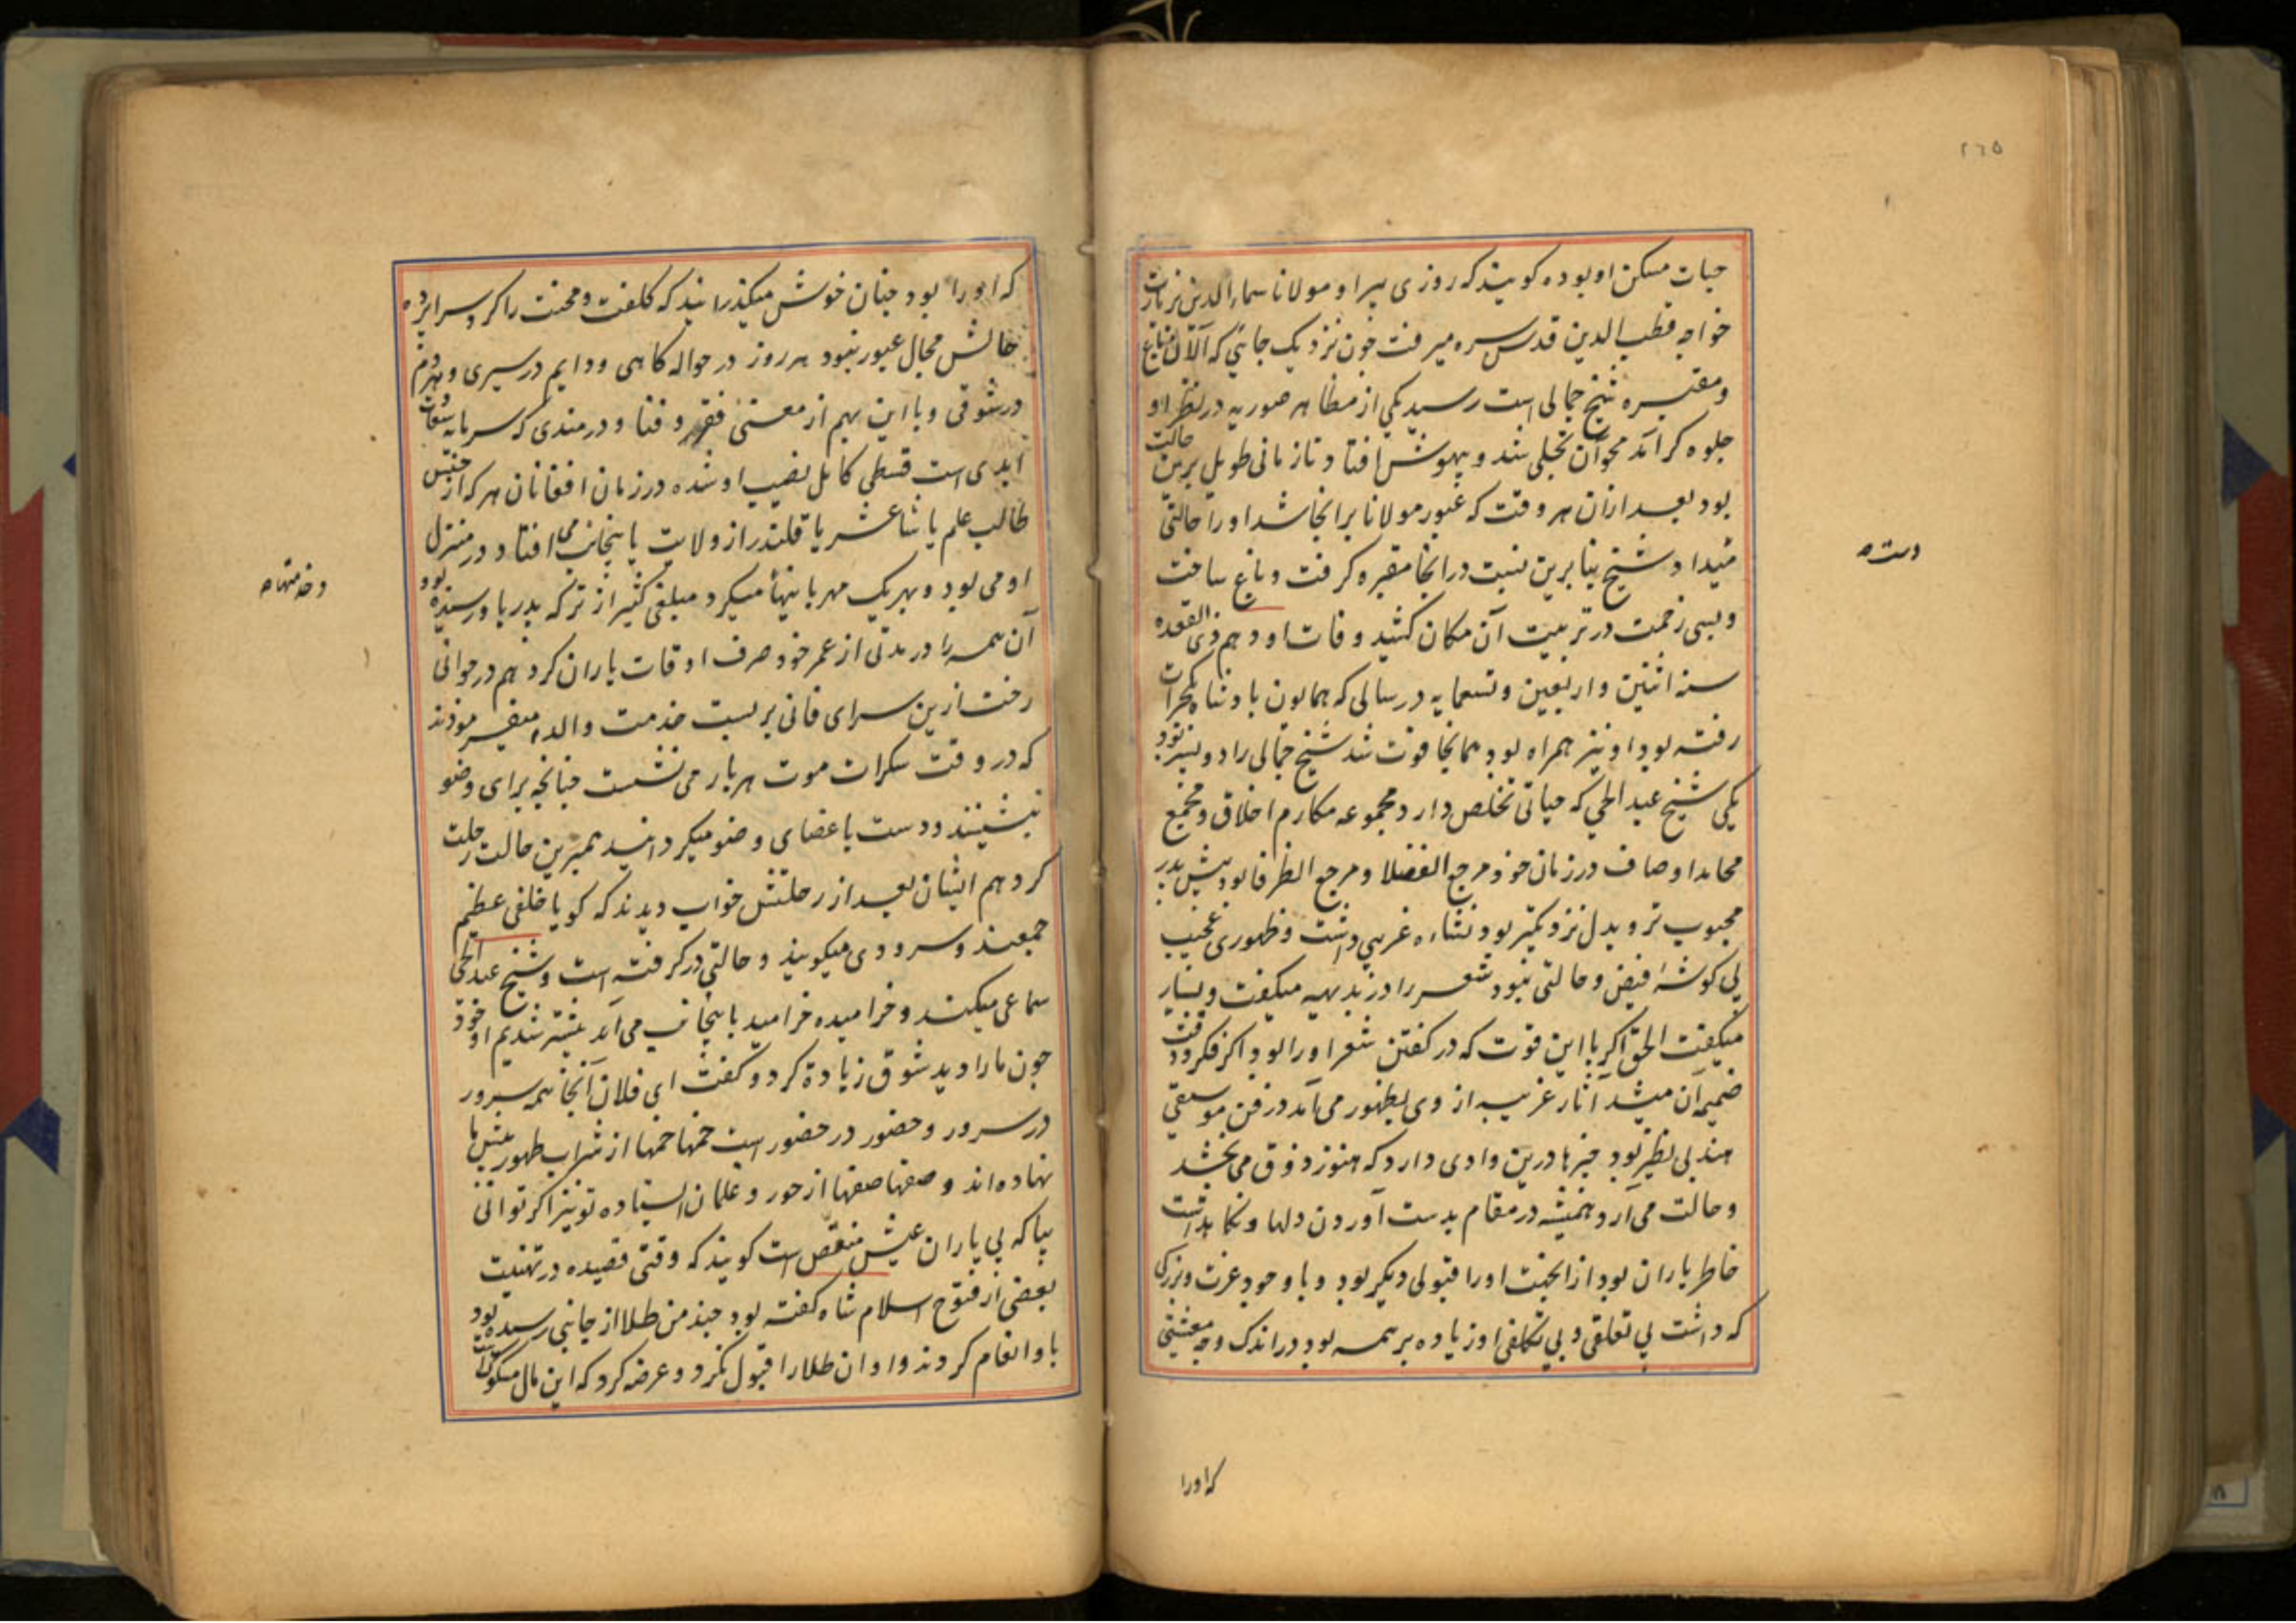 ٢٦٥
حیات مسکن او بوده کویند که روزی پیر او مولانا سماء الدین بزیارت
خواجه قطب الدین قدس سره میرفت چون نزدیک جائی که آلآن باغ
ومقبره شیخ جمالی است رسید یکی از مظاهر صوریه در نظر او
جلوه کر آمد محو آن تجلی شد و بیهوش افتاد تا زمانی طویل برین حالت
بود بعد ازان هر وقت که عبور مولانا برانجا شد اورا حالتی
میداد شیخ بنابرین نسبت درانجا مقبره کرفت و باغ ساخت
دست
وبسی زحمت در تربیت آن مکان کشید وفات او دهم ذی القعده
سنه اثنین واربعین وتسعمایه در سالی که همایون بادشاه کجرات
رفته بود او نیز همراه بود همانجا فوت شد شیخ جمالی را دو پسر بود
یکی شیخ عبد الحی که حیاتی تخلص دارد مجموعه مکارم اخلاق ومجمع
محامد اوصاف در زمان خود مرجع الفضلا ومرجع الظرفا بود پیش پدر
محبوب تر و بدل نزدیکتر بود نشاء ه غریبی داشت وظهوری عجیب
بی کوشهٔ فیض وحالتی نبود شعر را در بدیهه میکفت وبسیار
میکفت الحق اکر با این قوت که در کفتن شعر اورا بود اکر فکر و دقت
ضمیمه آن میشد آثار غریبه از وی بظهور می آمد در فن موسیقی
هند بی نظیر بود چیزها درین وادی دارد که هنوز ذوق می بخشد
وحالت می آرد همیشه در مقام بدست آوردن دلها ونکاهداشت
خاطر یاران بود ازانجهت اورا قبولی دیکر بود وبا وجود عزت وبزرکی
که داشت بی تعلقی وبی تکلفی او زیاده بر همه بود در اندک وجه معیشتی
که اورا
که اورا بود چنان خوش میکذرانید که کلفت ومحنت را کرد سراپرده
حالش مجال عبور نبود هر روز در حواله کاهی ودایم در سیری وهردم
در شوقی وبا این بهم از معنیٔ فقر وفنا ودرمندی که سرمایه سعادت
ابدی است قسطی کامل نصیب او شده در زمان افغانان هر که از جنس
طالب علم یا شاعر یا قلندر از ولایت باینجانب می افتاد در منزل
او می بود وبهریک مهربانیها میکرد مبلغی کثیر از ترکه پدر باو رسیده بود
آن همه را در مدتی از عمر خود صرف اوقات یاران کرد هم در جوانی
رخت ازین سرای فانی بر بست خدمت والد میفرمودند
که در وقت سکرات موت هربار می نشست چنانچه برای وضو
نشینند ودست باعضای وضو میکردانید همبرین حالت رحلت
کرد هم ایشان بعد از رحلتش خواب دیدند که کویا خلقی عظیم
جمعند وسرودی میکویند وحالتی درکرفته است وشیخ عبد الحی
سماعی میکند وخرامیده خرامیده باینجانب می آید پیشتر شدیم او خود
چون مارا دید شوق زیادة کرد وکفت ای فلان آنجا همه سرور
در سرور وحضور در حضور است خمها خمها از شراب طهور پیش ما
نهاده اند وصفها صفها از حور وغلمان ایستاده تو نیز اکر توانی
بیا که بی یاران عیش منغص است کویند که وقتی قصیده در تهنیت
بعضی از فتوح اسلام شاه کفته بود چند من طلا از جانبی رسیده بود
باو انعام کردند او ان طلارا قبول نکرد وعرضه کرد که این مال